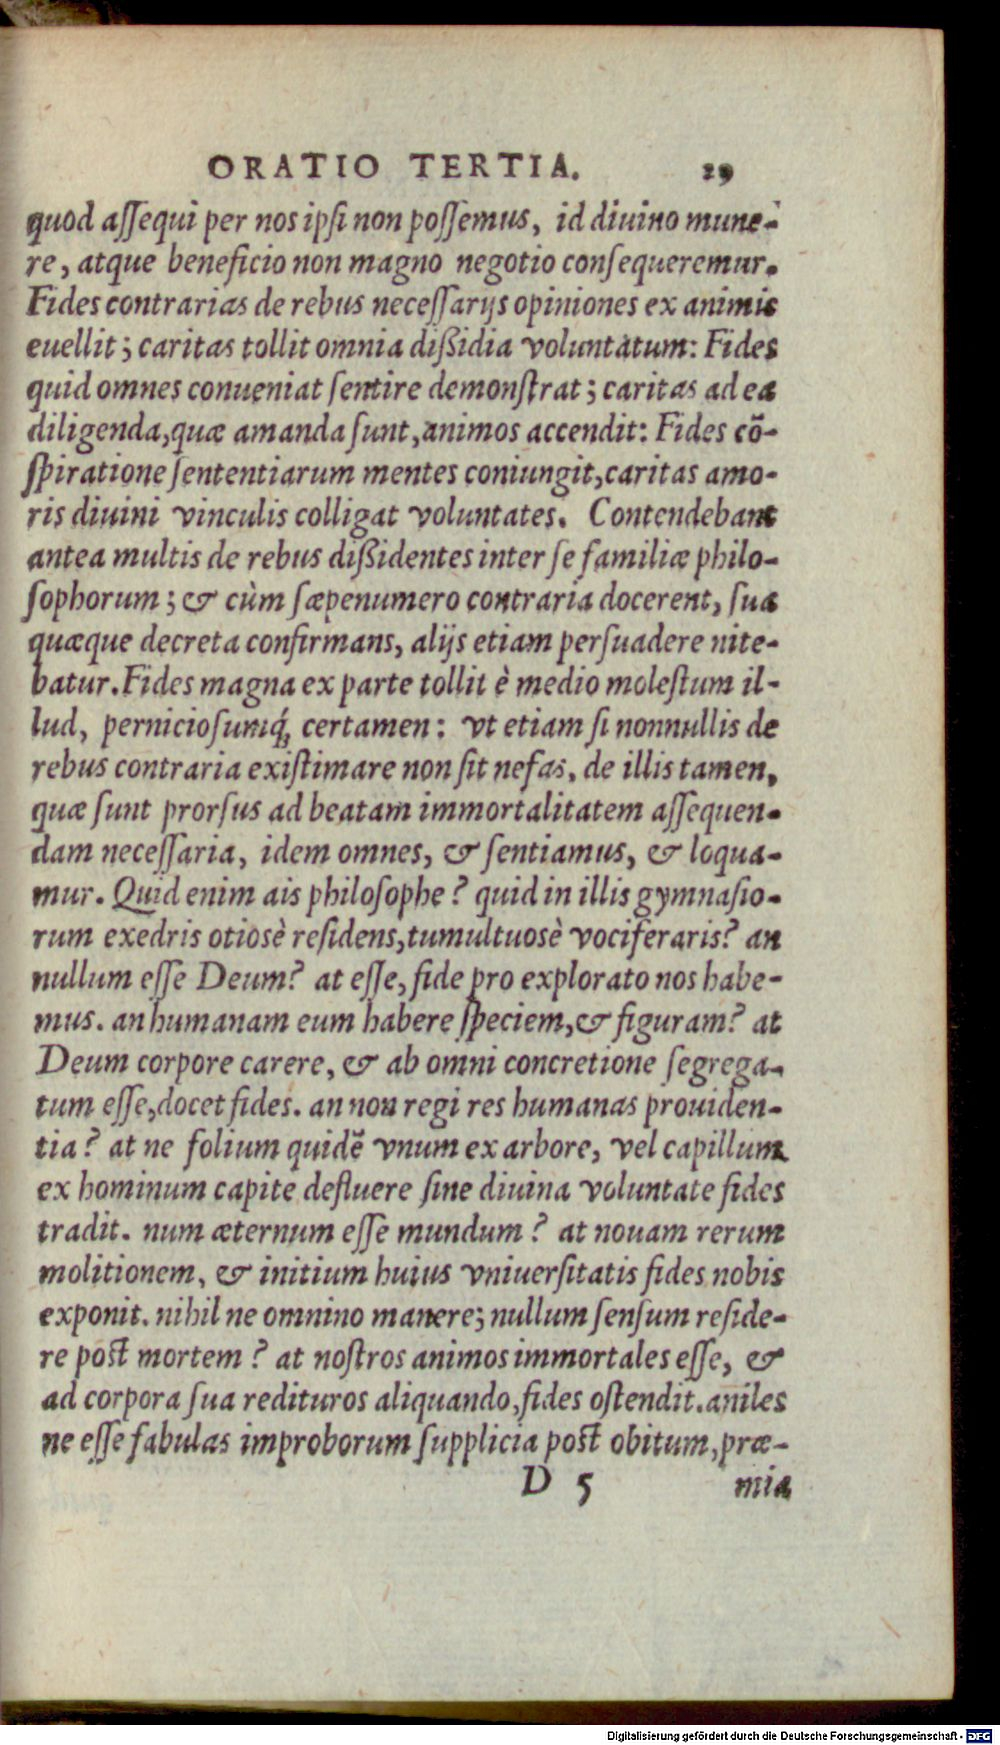 ORATIO TERTIA. 29
quod aſſequi per nos ipſi non poſſemus, id diuino mune-
re, atque beneficio non magno negotio conſequeremur.
Fides contrarias de rebus neceſſarijs opiniones ex animis
euellit; caritas tollit omnia dißidia voluntatum: Fides
quid omnes conueniat ſentire demonſtrat; caritas ad ea
diligenda, quæ amanda ſunt, animos accendit: Fides cõ-
ſpiratione ſententiarum mentes coniungit, caritas amo-
ris diuini vinculis colligat voluntates. Contendebant
antea multis de rebus dißidentes inter ſe familiæ philo-
ſophorum; & cùm ſæpenumero contraria docerent, ſua
quæque decreta confirmans, alijs etiam perſuadere nite-
batur. Fides magna ex parte tollit è medio moleſtum il-
lud, pernicioſumq́; certamen: vt etiam ſi nonnullis de
rebus contraria exiſtimare non ſit nefas, de illis tamen,
quæ ſunt prorſus ad beatam immortalitatem aſſequen-
dam neceſſaria, idem omnes, & ſentiamus, & loqua-
mur. Quid enim ais philoſophe? quid in illis gymnaſio-
rum exedris otiosè reſidens, tumultuosè vociferaris? an
nullum eſſe Deum? at eſſe, fide pro explorato nos habe-
mus. an humanam eum habere ſpeciem, & figuram? at
Deum corpore carere, & ab omni concretione ſegrega-
tum eſſe, docet fides. an non regi res humanas prouiden-
tia? at ne folium quidẽ vnum ex arbore, vel capillum
ex hominum capite defluere ſine diuina voluntate fides
tradit. num æternum eſſe mundum? at nouam rerum
molitionem, & initium huius vniuerſitatis fides nobis
exponit. nihil ne omnino manere; nullum ſenſum reſide-
re poſt mortem? at noſtros animos immortales eſſe, &
ad corpora ſua redituros aliquando, fides oſtendit. aniles
ne eſſe fabulas improborum ſupplicia poſt obitum, præ-
D 5 mia
Digitalisierung gefördert durch die Deutsche Forschungsgemeinschaft - DFG